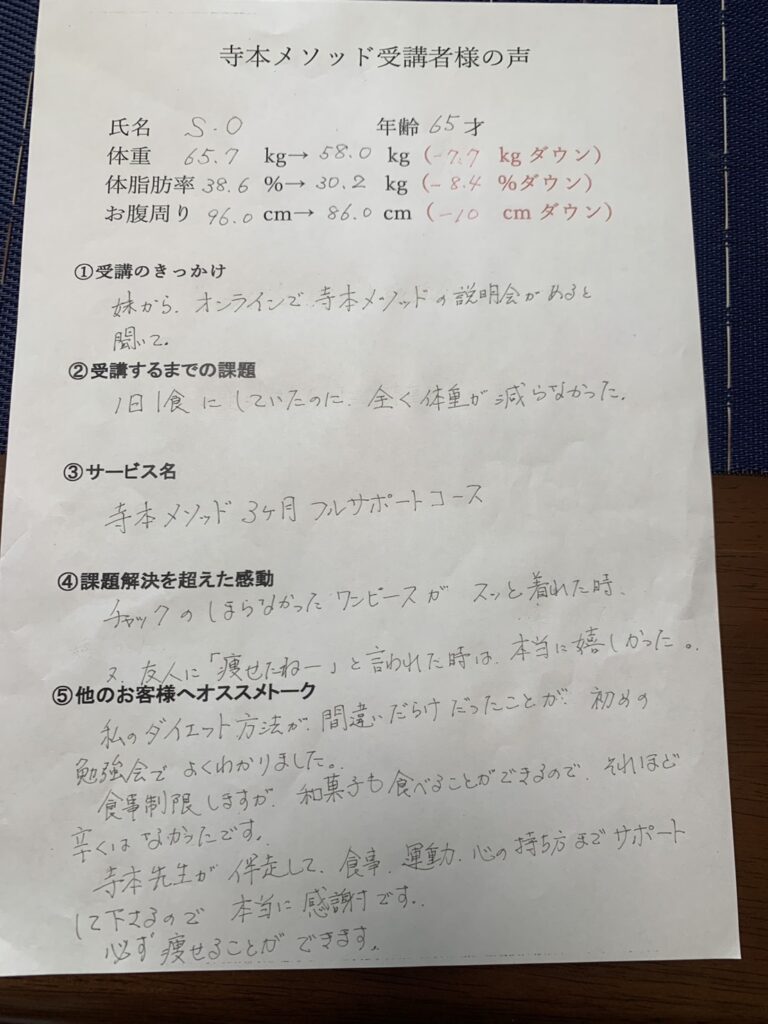 寺本メソッド受講者様の声
氏名 S.O 年齢 65才
体重 65.7 kg→ 58.0 kg (-7.7 kgダウン)
体脂肪率 38.6 %→ 30.2 kg (-8.4 %ダウン)
お腹周り 96.0 cm→ 86.0 cm (-10 cmダウン)
①受講のきっかけ
妹から、オンラインで寺本メソッドの説明会があると
聞いて。
②受講するまでの課題
1日1食にしていたのに、全く体重が減らなかった。
③サービス名
寺本メソッド 3ヶ月 フルサポートコース
④課題解決を超えた感動
チャックのしまらなかったワンピースが スッと着れた時、
又、友人に「痩せたねー」と言われた時は、本当に嬉しかった。
⑤他のお客様へオススメトーク
私のダイエット方法が、間違いだらけだったことが、初めの
勉強会でよくわかりました。
食事制限しますが、和菓子も食べることができるので、それほど
辛くはなかったです。
寺本先生が伴走して、食事、運動、心の持ち方までサポート
して下さるので 本当に感謝です。
必ず痩せることができます。